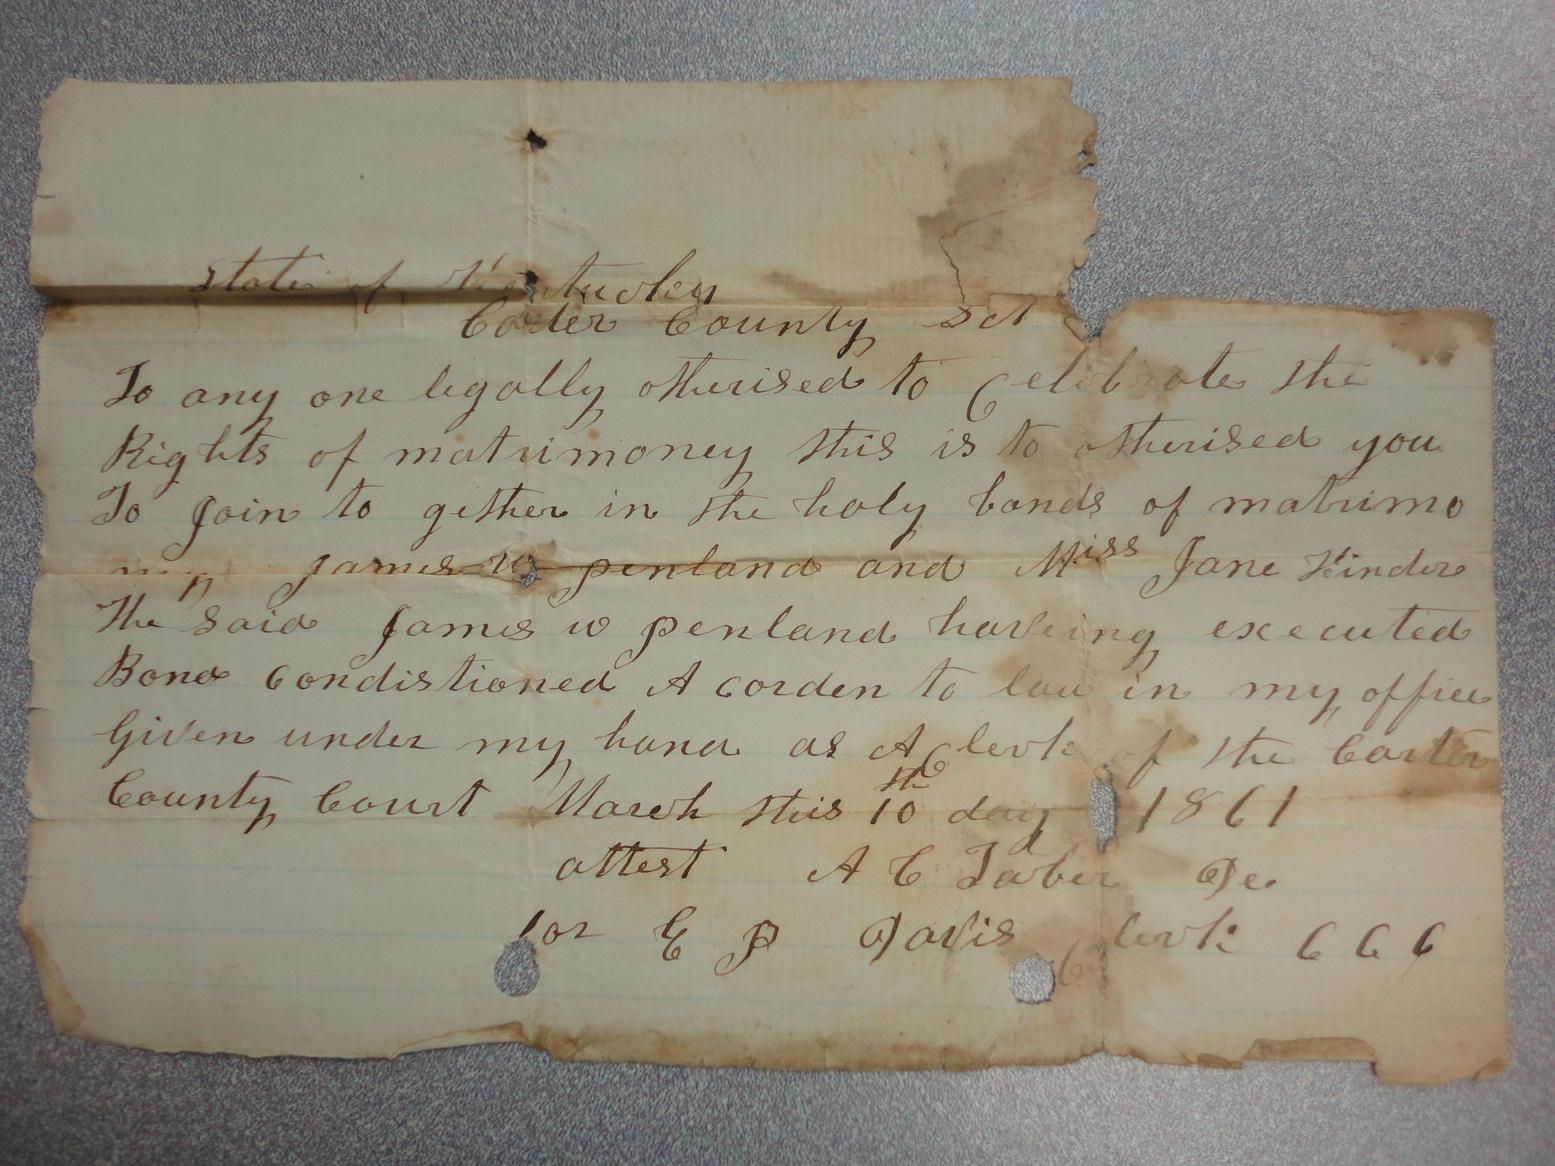 State of Kentucky
Carter County Sct
To any one legally otherised to Celibrate the
Rights of matrimoney this is to otherised you
To join to gether in the holy bonds of matrimo
ny James W penland and Miss Jane Kinder
The said James w penland haveing executed
Bond condistioned A corden to law in my office
Given under my hand as A Clerk of the Carter
County Court March this 10th day 1861
attest A C Taber De
for E P Davis Clerk C C C